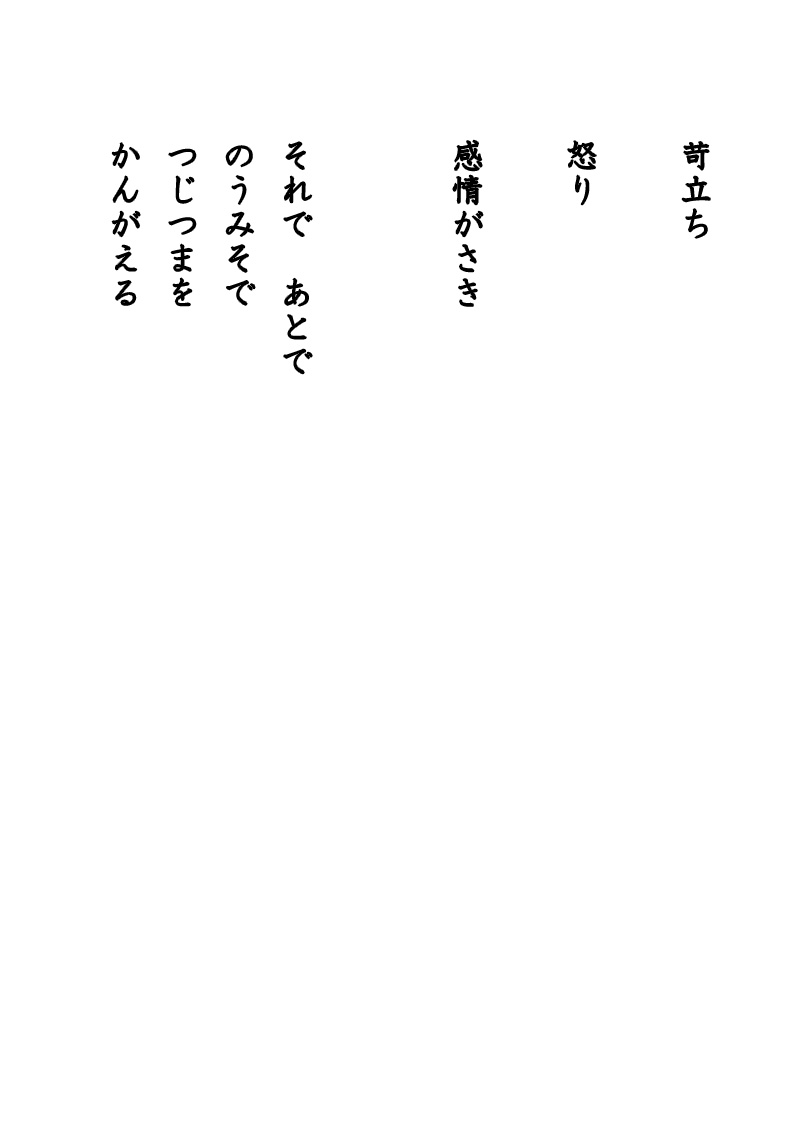 苛立ち
怒り
感情がさき
それで　あとで
のうみそで
つじつまを
かんがえる